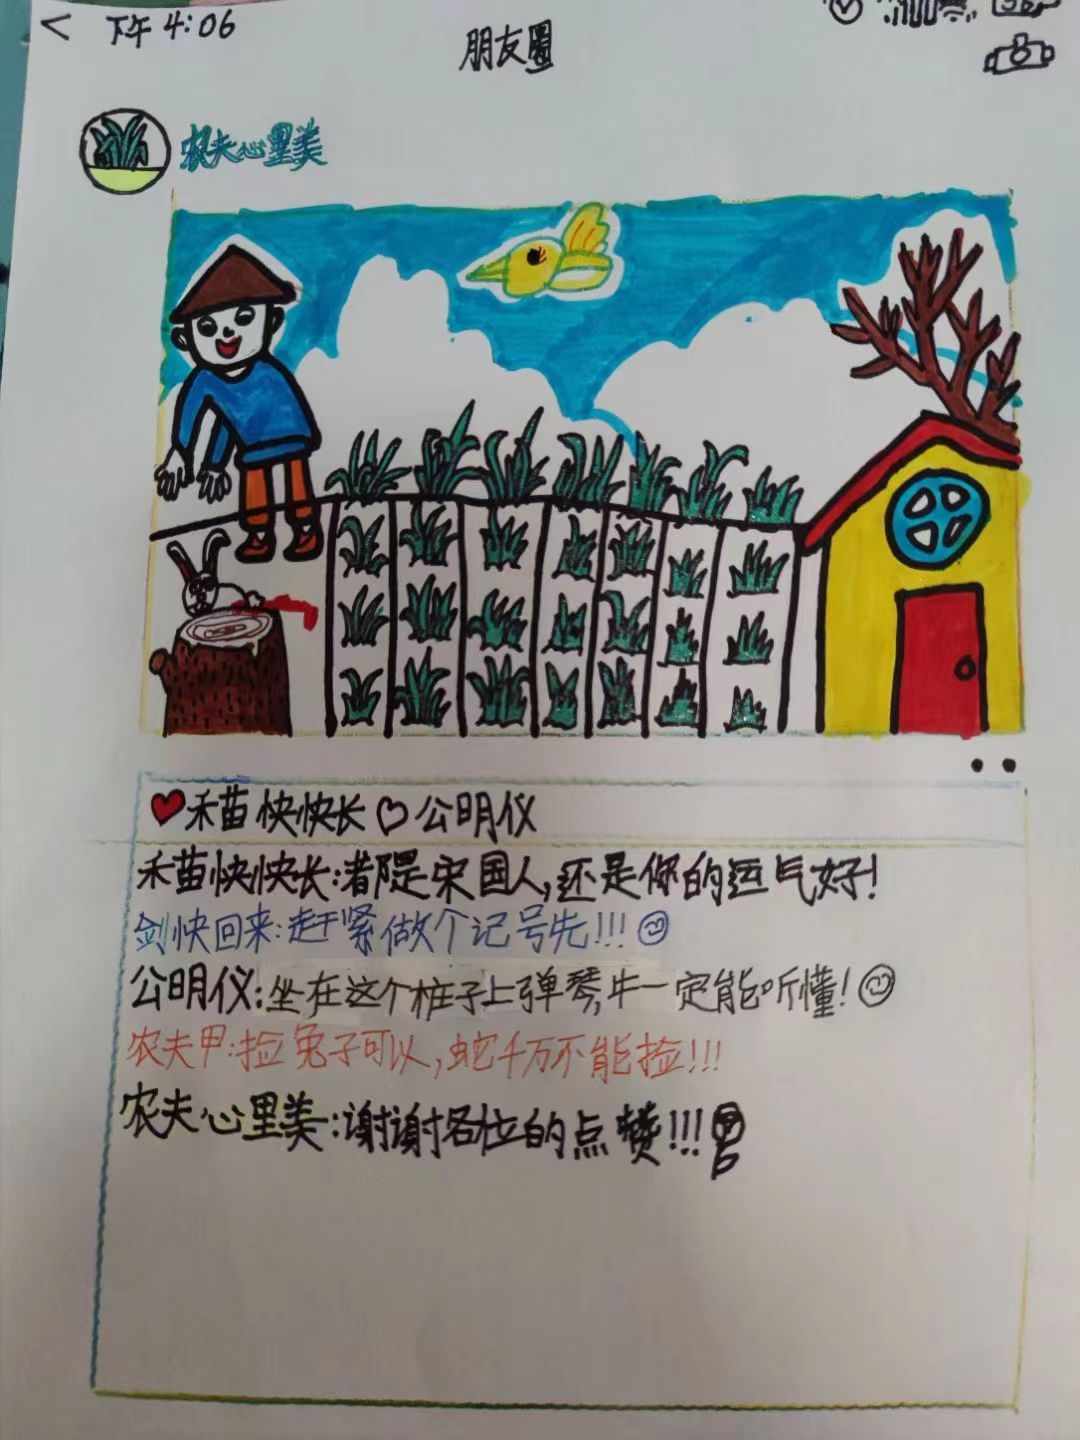 < 下午 4:06
朋友圈
农夫心里美
禾苗快快长 公明仪
禾苗快快长:都是宋国人,还是你的运气好!
剑快回来:赶紧做个记号先!!!
公明仪:坐在这个桩子上弹琴,牛一定能听懂!
农夫甲:捡兔子可以,蛇千万不能捡!!!
农夫心里美:谢谢各位的点赞!!!